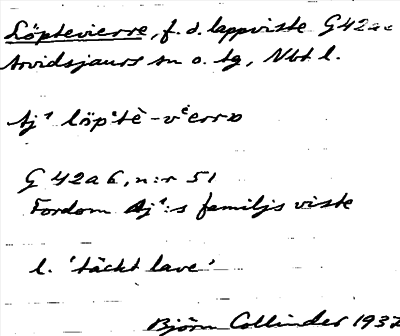 Löptevierre, f. d. lappviste G42a
Arvidsjaurs sn o. tg, Nbt l.
Aj¹ löp:tè-vⁱerrɒ
G 42 a 6, n:r 51
Fordom Aj¹:s familjs viste
l. 'täckt lave'
Björn Collinder 1937